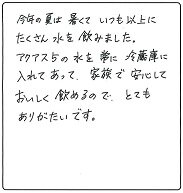 今年の夏は暑くていつも以上に
たくさん水を飲みました。
アクアス5の水を常に冷蔵庫に
入れてあって、家族で安心して
おいしく飲めるので、とても
ありがたいです。